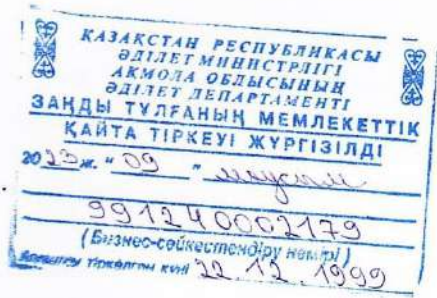 ҚАЗАҚСТАН РЕСПУБЛИКАСЫ
ӘДІЛЕТ МИНИСТРЛІГІ
АҚМОЛА ОБЛЫСЫНЫҢ
ӘДІЛЕТ ДЕПАРТАМЕНТІ
ЗАҢДЫ ТҰЛҒАНЫҢ МЕМЛЕКЕТТІК
ҚАЙТА ТІРКЕУІ ЖҮРГІЗІЛДІ
20 23 ж. "09" маусым
991240002179
(Бизнес-сәйкестендіру нөмірі)
Алғашқы тіркелген күні 22.12.1999